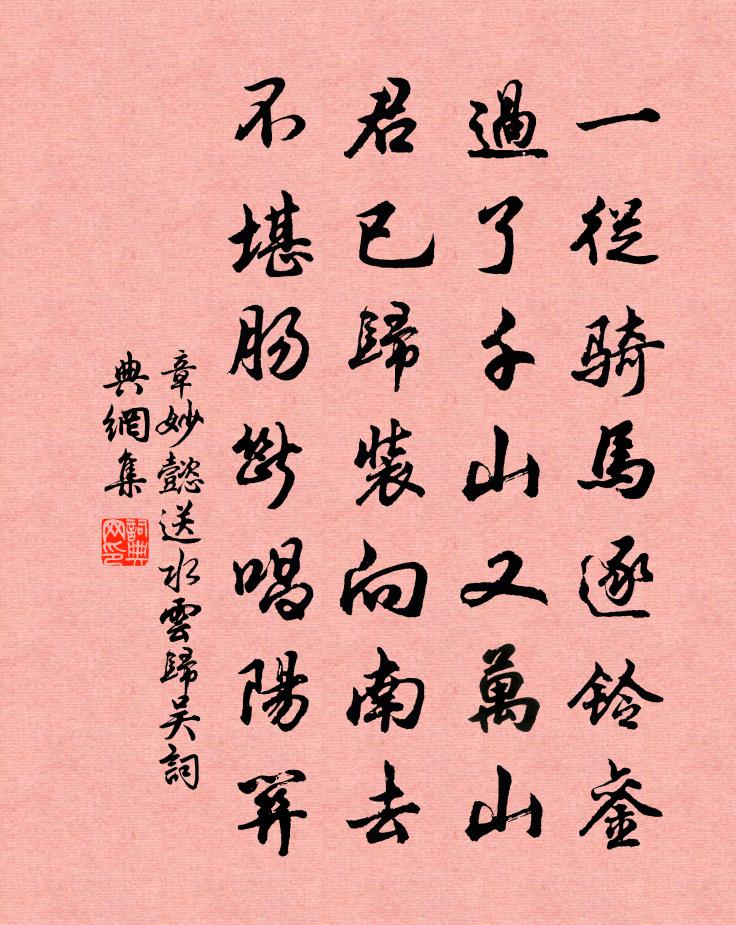 一從騎馬逐鈴銮
過了千山又萬山
君已歸裝向南去
不堪腸斷唱陽關
章妙懿送水雲歸吳詞
典網集
詞典
网印